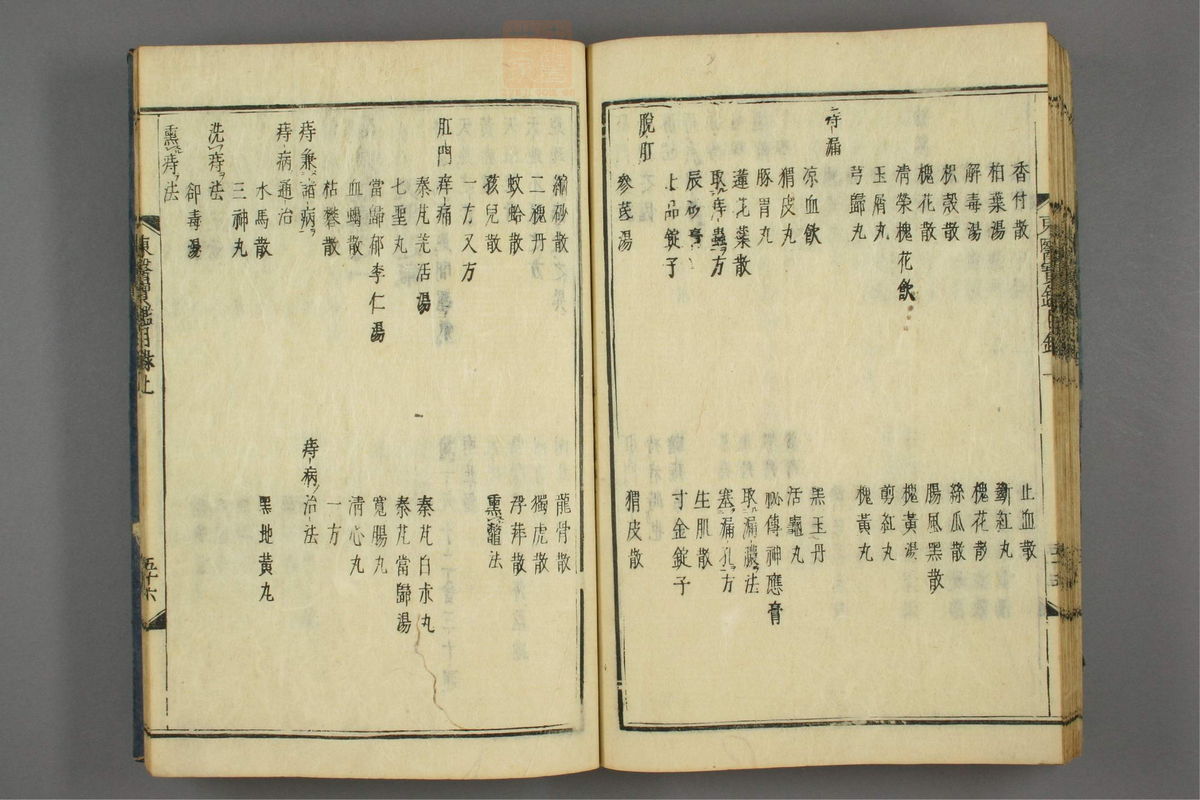 香付散　止血散
柏葉湯　斷紅丸
解毒湯　槐花散
枳殼散　絲瓜散
槐花散　腸風黑散
淸榮槐花飮　槐黃湯
玉屑丸　剪紅丸
芎歸丸　槐黃丸
痔漏
涼血飮　黑玉丹
猬皮丸　活龜丸
豚胃丸　祕傳神應膏
蓮花藥散　取漏膿法
取痔蟲方　塞漏孔方
辰砂膏　生肌散
上品錠子　寸金錠子
脫肛
參芪湯　猬皮散
東醫寶鑑目錄上
五十五
縮砂散　龍骨散
二槐丹　獨虎散
蚊蛤散　浮萍散
孩兒散　熏鼈法
一方又方
肛門痒痛
秦芃羌活湯　秦芃白朮丸
七聖丸　秦芃當歸湯
當歸郁李仁湯　寬腸丸
血竭散　淸心丸
枯礬散　一方
痔兼諸病　痔病治法
痔病通治
水馬散　黑地黃丸
三神丸
洗痔法
却毒湯
熏痔法
東醫寶鑑目錄上
五十六